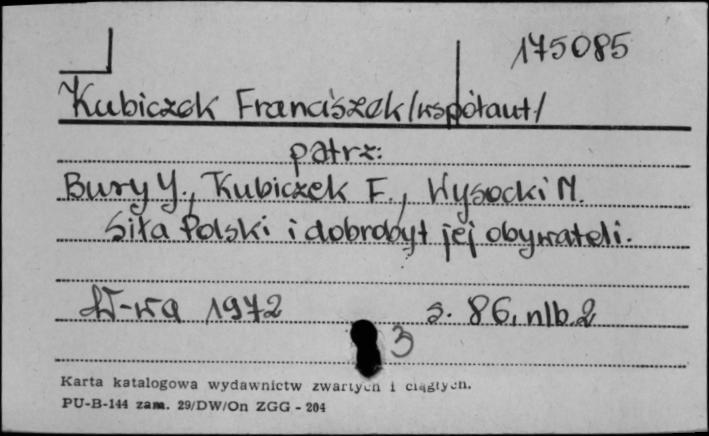 175085
Kubiczek Franciszek /współaut/
patrz:
Bury Y., Kubiczek F., Wysocki M.
Siła Polski i dobrobyt jej obywateli.
W-wa 1972 s. 86, nlb. 2
3
Karta katalogowa wydawnictw zwartych i ciągłych.
PU-B-144 zam. 29/DW/On ZGG - 204